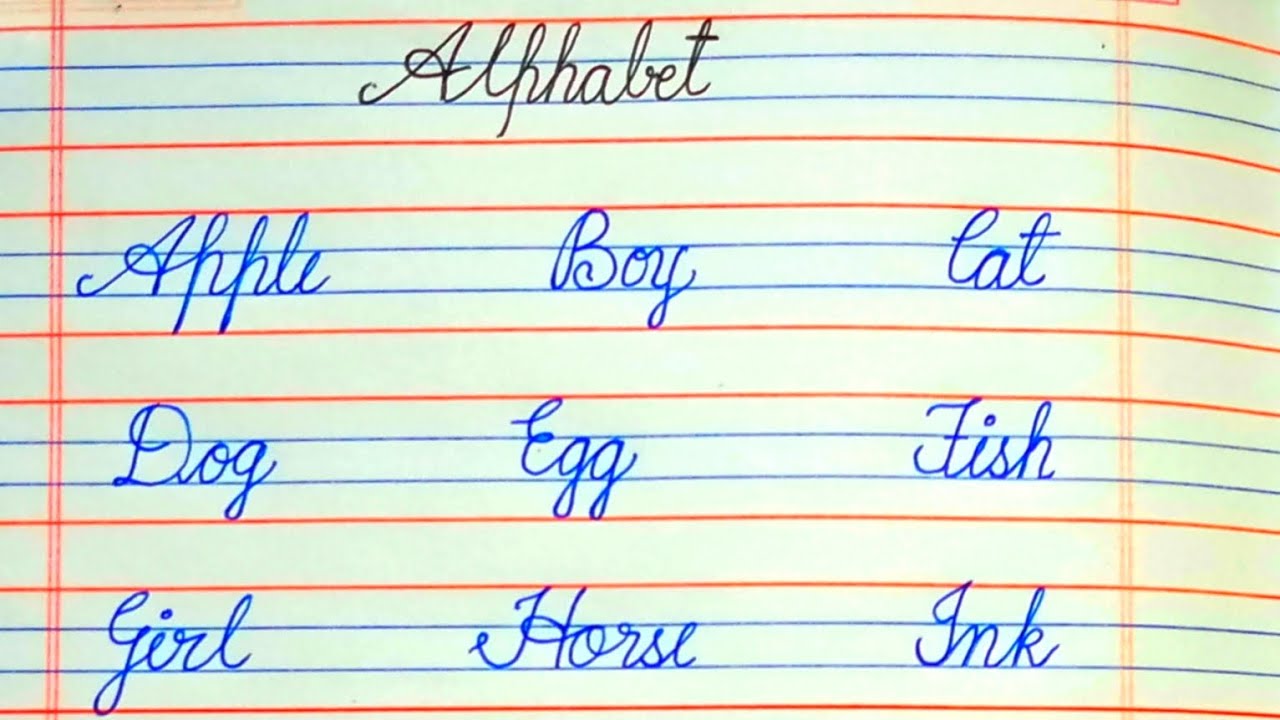 Alphabet
Apple Boy Cat
Dog Egg Fish
Girl Horse Ink